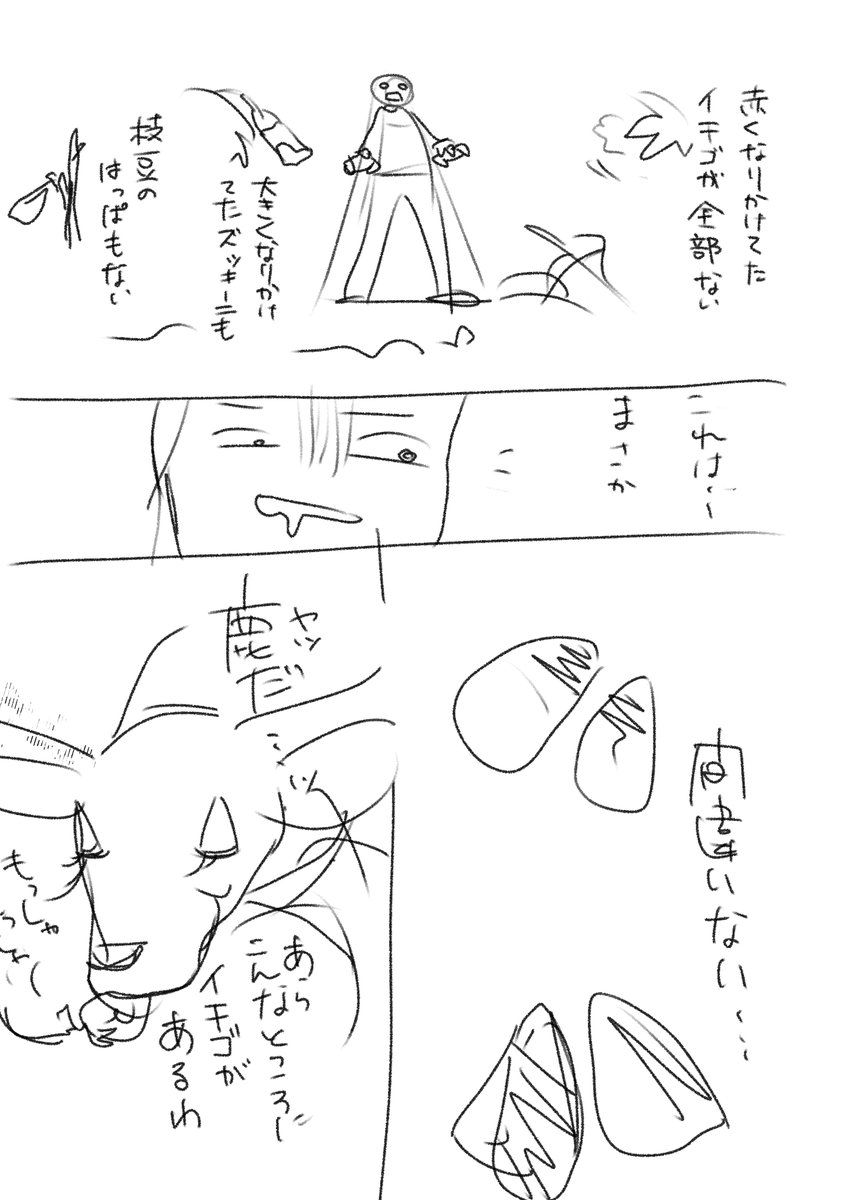 赤くなりかけてた
イチゴが全部ない
大きくなりかけ
てたズッキーニも
枝豆の
はっぱもない
これは…
まさか
間違いない…
ヤツだ
鹿だ
あら
こんなところに
イチゴが
あるわ
もっしゃ